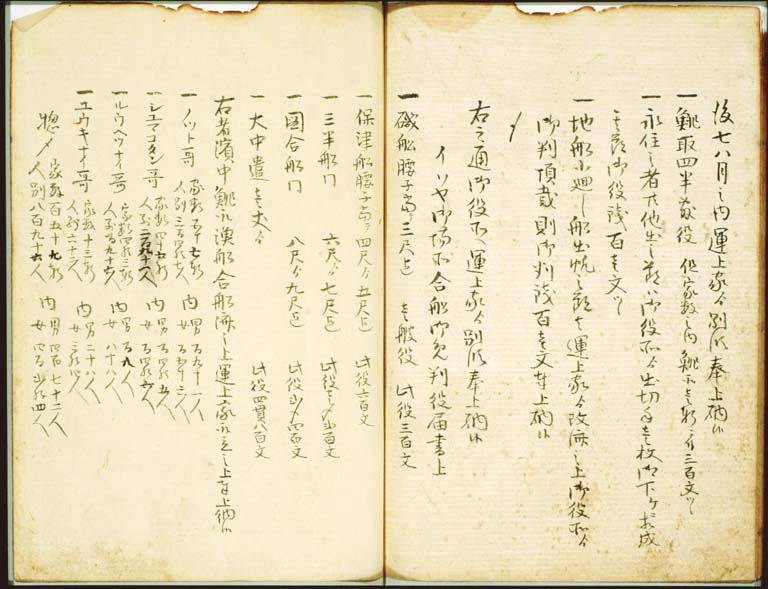 後七八月之内運上家ゟ別帋奉上納候
一鯡取四半敷役 但家数之内鯡取壱軒ニ付三百文ツヽ
一永住之者共他出之節ハ御役所ゟ出切手壱枚御下ケニ相成
其節御役銭百壱文ツヽ
一地船小廻し船出帆之節者運上家ゟ改済之上御役所ゟ
御判頂戴則御判銭百壱文奉上納候
〆
右之通御役所運上家ゟ別帋奉上納候
イソヤ御場所合船御免判役届書上
一磯船腰子 三尺迄 壱艘役 此役三百文
一保津船腰子 四尺ゟ五尺迄 此役六百文
一三半船 六尺ゟ七尺迄 此役壱〆弐百文
一図合船 八尺ゟ九尺迄 此役弐〆四百文
一大中遣壱丈ゟ 此役四貫八百文
右者濱中鯡取漁船合船済之上運上家取立之上奉上納候
一ノット 家数五十七軒 人別三百四拾七人 内 男 百九十一人 女 百五十六人
一シユマコタン 家数四十七軒 人別二百九十一人 内 男 百四拾五人 女 百四拾六人
一ルウヘツナイ 家数四拾三軒 人別百九十六人 内 男 百九人 女 八十八人
一ユウキナイ 家数十三軒 人別六十二人 内 男 二十八人 女 三拾四人
惣〆 家数百五十九軒 人別八百九十六人 内 男 四百七十二人 女 四百弐拾四人